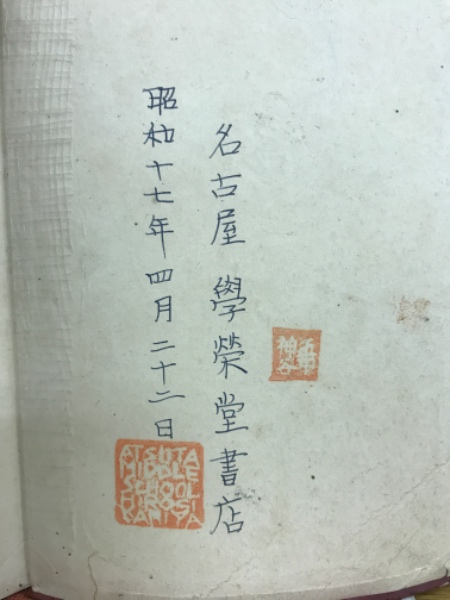 神谷
名古屋 學榮堂書店
昭和十七年四月二十二日
ATSUTA
MIDDLE
SCHOOL